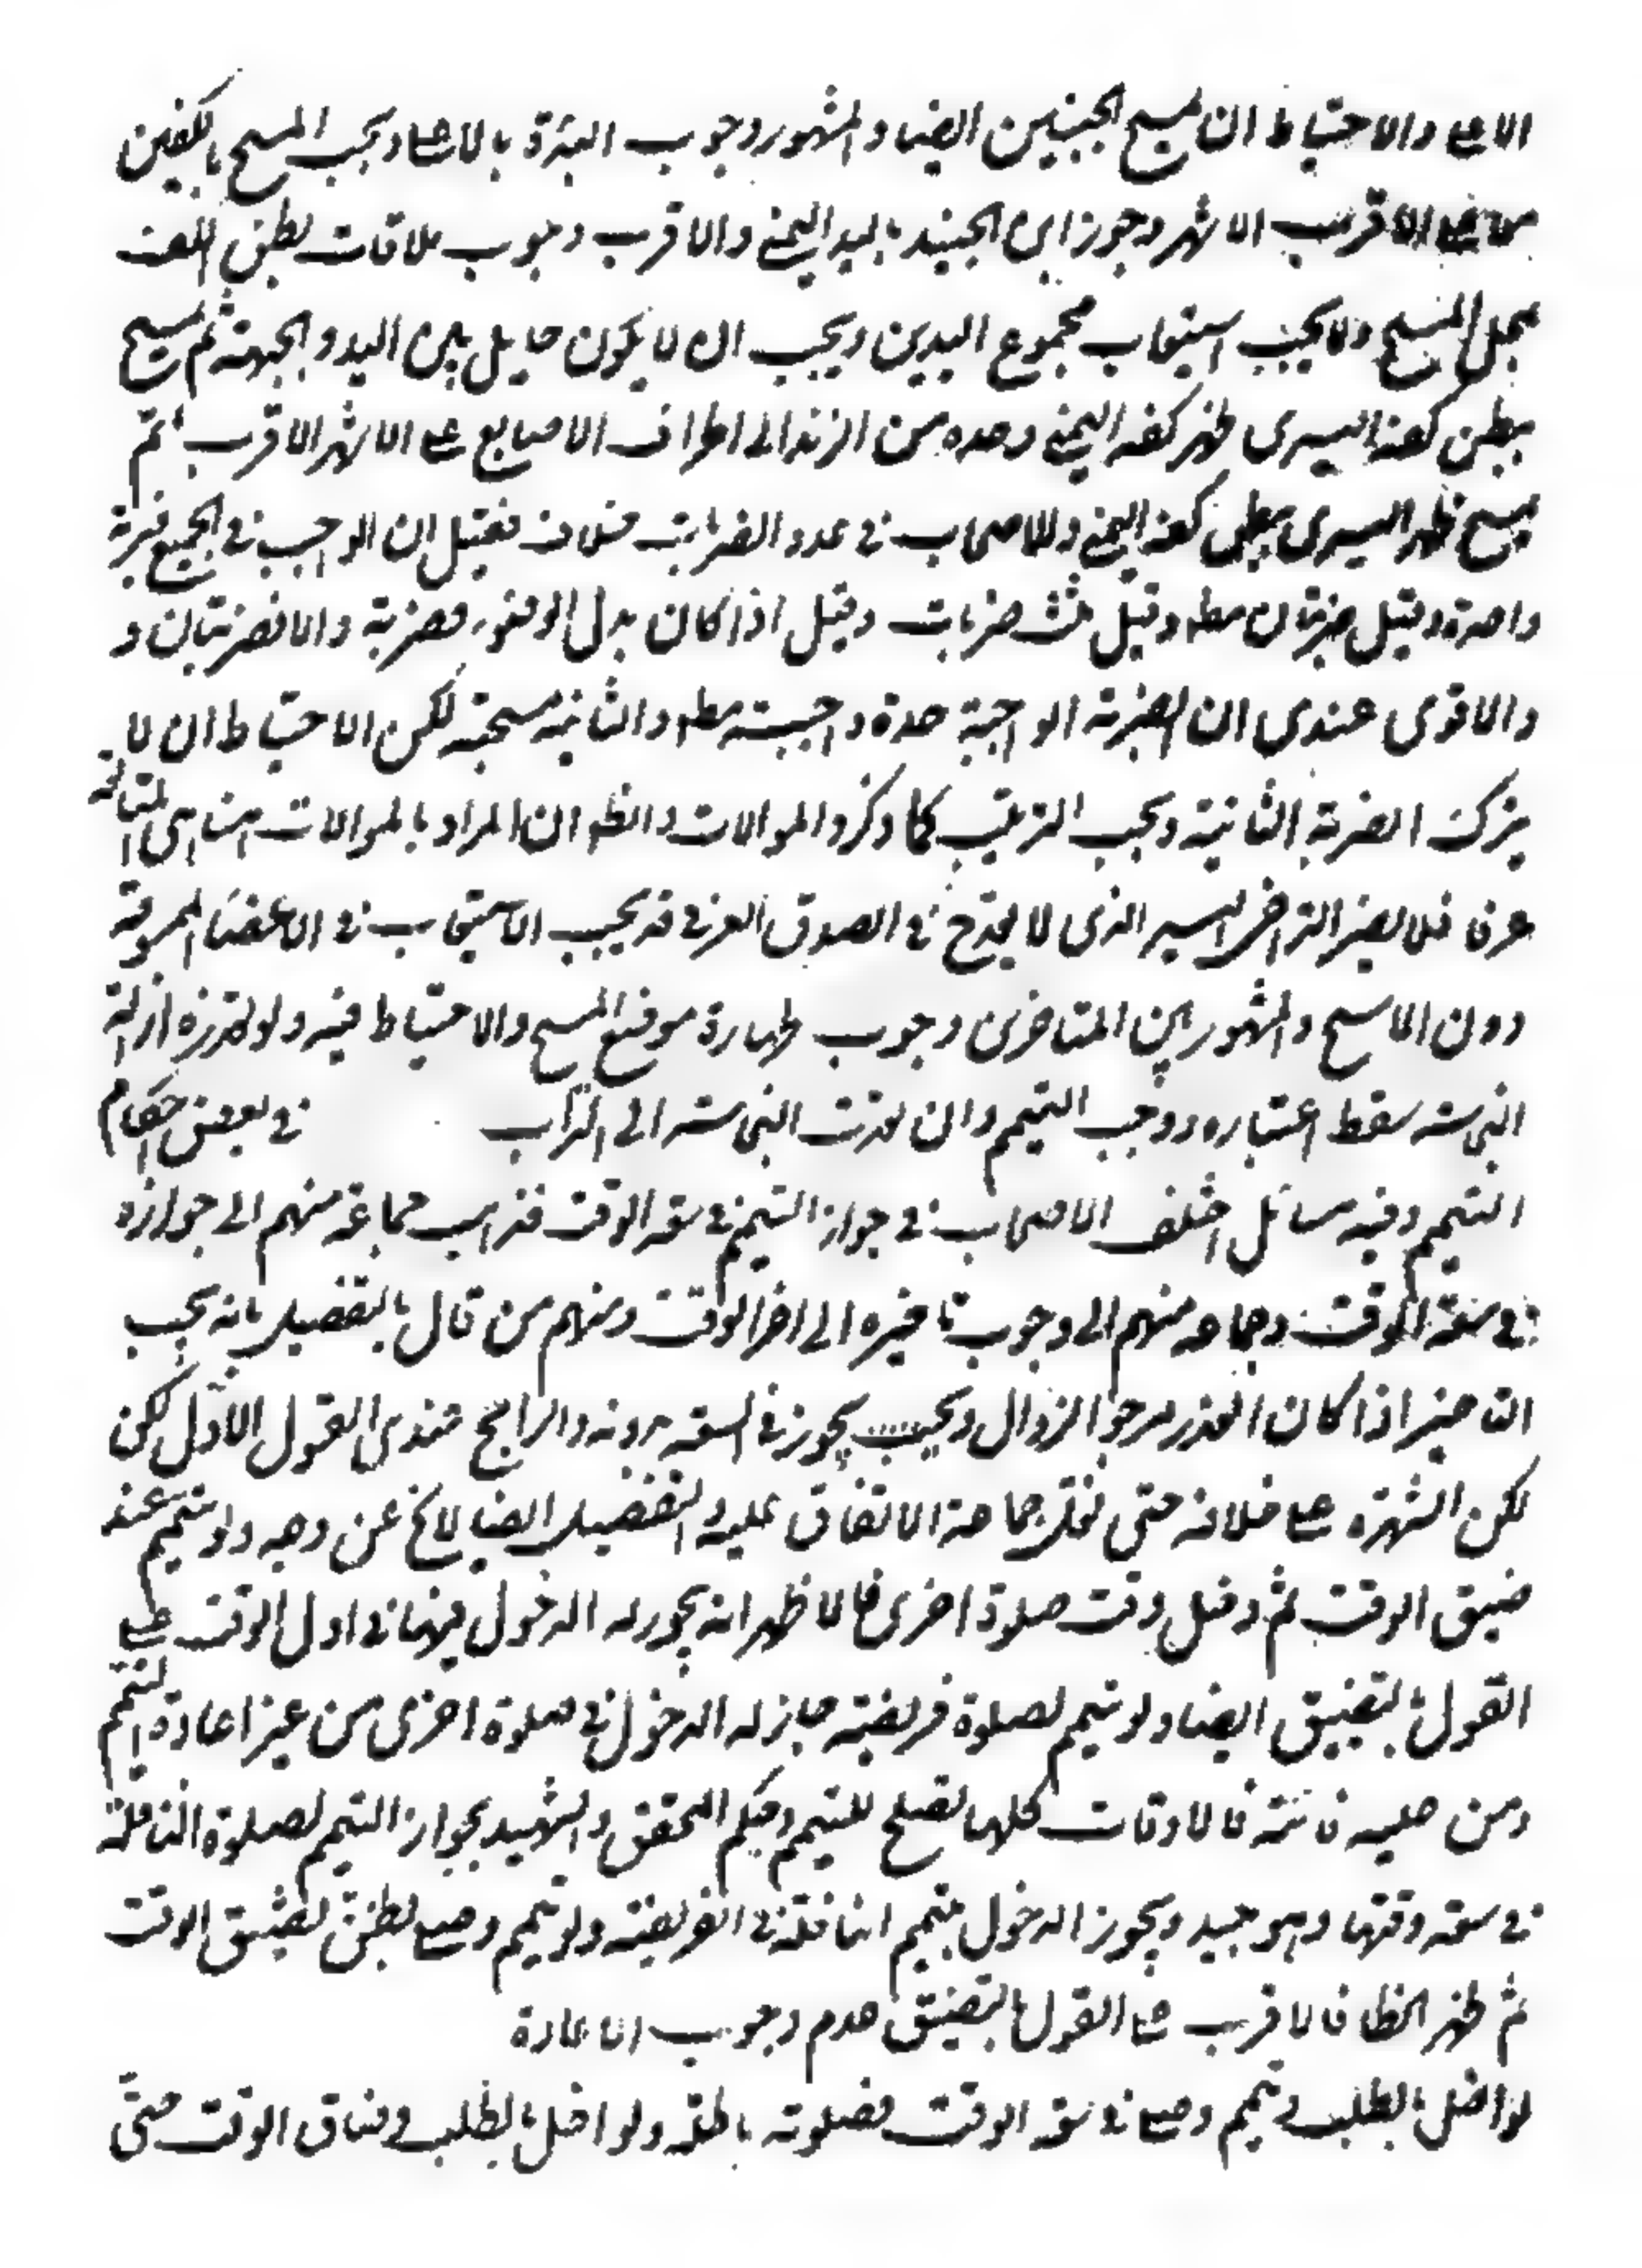 الاعلى والاحتياط ان يمسح الجبينين ايضا والمشهور وجوب البدأة بالاعلى ويجب المسح بالكفين
معا على الاقرب الاشهر وجوز ابن الجنيد باليد اليمنى والاقرب وجوب ملاقات بطن الكف
بمحل المسح ولا يجب استيعاب مجموع اليدين ويجب ان لا يكون حايل بين اليد والجبهة ثم يمسح
ببطن كفه اليسرى ظهر كفه اليمنى وحده من الزند الى اطراف الاصابع على الاشهر الاقرب ثم
يمسح ظهر اليسرى ببطن كفه اليمنى وللاصحاب في عدد الضربات خلاف فقيل ان الواجب في الجميع ضربة
واحدة وقيل ضربتان مط وقيل ثلث ضربات وقيل اذا كان بدل الوضوء فضربة والا فضربتان و
والاقوى عندي ان الضربة الواجبة حدة واجبته مط والثانية مستحبة لكن الاحتياط ان لا
يترك الضربة الثانية ويجب الترتيب كما ذكر والموالات والظ ان المراد بالموالات هنا هي المتابعة
عرفا فلا يضر التراخي اليسير الذي لا يقدح في الصدق العرفي قد يجب الاستيعاب في الاعضاء الممسوحة
دون الماسح والمشهور بين المتاخرين وجوب طهارة موضع المسح والاحتياط فيه ولو تعذره ازالة
النجاسة سقط اعتباره ووجب التيمم وان تعدت النجاسة الى التراب في بعض احكام
التيمم وفيه مسائل اختلف الاصحاب في جواز التيمم في سعة الوقت فذهب جماعة منهم الى جوازه
في سعة الوقت وجماعة منهم الى وجوب تاخيره الى اخر الوقت ومنهم من قال بالتفصيل بانه يجب
التاخير اذا كان العذر مرجو الزوال ويجب يجوز في السعة بدونه والراجح عندي القول الاول لكن
لكن الشهرة على خلافه حتى نقل جماعة الاتفاق عليه والتفصيل ايضا لا يخ عن وجه ولو تيمم عند
ضيق الوقت ثم دخل وقت صلوة اخرى فالاظهر انه يجوز له الدخول فيها في اول الوقت على
القول بالتضيق ايضا ولو تيمم لصلوة فريضة جاز له الدخول في صلوة اخرى من غير اعادة التيمم
ومن عليه فائتة فالاوقات كلها تصلح للتيمم وحكم المحقق والشهيد بجواز التيمم لصلوة النافلة
في سعة وقتها وهو جيد ويجوز الدخول بتيمم النافلة في الفريضة ولو تيمم وصلى بظن تضيق الوقت
ثم ظهر الخطا فالاقرب على القول بالتضيق عدم وجوب الاعادة
لو اخل بالطلب وتيمم وصلى في سعة الوقت فصلوته باطلة ولو اخل بالطلب وضاق الوقت حتى